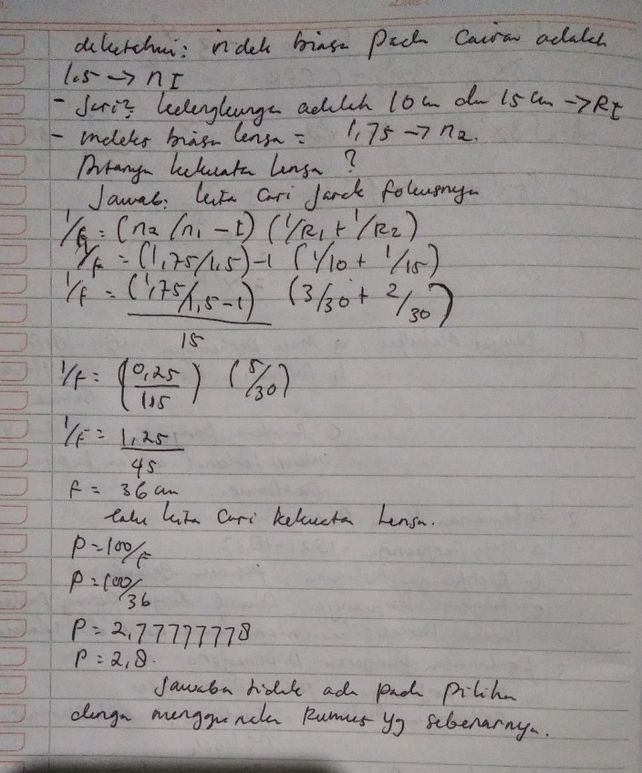 diketahui: indek bias pada cairan adalah
1.5 → n1
- Jari2 kelengkungan adalah 10 cm dan 15 cm → R1
- indeks bias lensa = 1,75 → n2.
Ditanya kekuatan lensa ?
Jawab: kita cari jarak fokusnya
1/f = (n2/n1 - 1) (1/R1 + 1/R2)
1/f = (1,75/1,5) - 1 (1/10 + 1/15)
1/f = (1,75/1,5 - 1) (3/30 + 2/30)
15
1/f = (0,25/1,5) (5/30)
1/f = 1,25/45
f = 36 cm
lalu kita cari kekuatan lensa.
P = 100/f
P = 100/36
P = 2,77777778
P = 2,8.
Jawaban tidak ada pada pilihan
dengan menggunakan rumus yg sebenarnya.